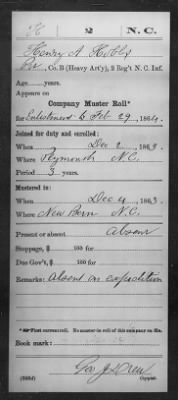 H 2 N.C.
Henry A. Hobbs
Pvt, Co. B (Heavy Art'y), 2 Reg't N. C. Inf.
Age years.
Appears on
Company Muster Roll*
for Enlistment to Feb 29, 1864.
Joined for duty and enrolled:
When Dec 2, 1863.
Where Plymouth N.C.
Period 3 years.
Mustered in:
When Dec 4, 1863
Where New Bern N.C.
Present or absent Absent
Stoppage, $ 100 for
Due Gov't, $ 100 for
Remarks: Absent on expedition
*First current roll. No muster-in roll of this company on file.
Book mark:
Geo. J. Drew
Copyist.